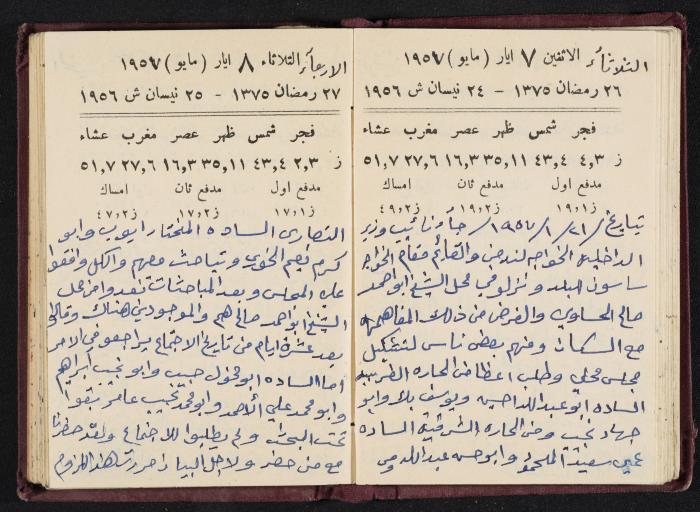 الثلاثاء الاثنين ٧ ايار (مايو) ١٩٥٧
٢٦ رمضان ١٣٧٥ – ٢٤ نيسان ش ١٩٥٦
فجر شمس ظهر عصر مغرب عشاء
ز ٤,٣ ٤٣,٤ ٣٥,١١ ١٦,٣ ٢٧,٦ ٥١,٧
مدفع اول مدفع ثان امساك
ز١٩,١ ز١٩,٢ ز٤٩,٢
بتاريخ /٢١/١/١٩٥٧/ جاء نائب وزير
الداخلية الخواجه لندمن والقائم مقام الخواجه
ساسون للبلد ونزلو في محل الشيخ ابو احمد
صالح الحناوي والغرض من ذلك المفاهمه
مع السكان ومنهم بعض ناس لتشكيل
مجلس محلي وطلب اعضا من الحاره الغربيه
الساده ابو عبد الله حسين ويوسف بلا وابو
جهاد نجيب ومن الحاره الشرقية الساده
عمي سعيد المحمود وابو حسن عبد الله ومن
الاربعاء الثلاثاء ٨ ايار (مايو) ١٩٥٧
٢٧ رمضان ١٣٧٥ – ٢٥ نيسان ش ١٩٥٦
فجر شمس ظهر عصر مغرب عشاء
ز ٢,٣ ٤٣,٤ ٣٥,١١ ١٦,٣ ٢٧,٦ ٥١,٧
مدفع اول مدفع ثان امساك
ز١٧,١ ز١٧,٢ ز٤٧,٢
النصارى الساده المختار ايوب وابو
كرم نعيم الخوري وتباحث معهم والكل وافقوا
على المجلس وبعد المباحثات تغدوا من محل
الشيخ ابو احمد صالح هم والموجودين هناك وقالوا
بعد عشرة ايام من تاريخ الاجتماع يراجعو في الامر
اما الساده ابو مخول حبيب وابو نجيب ابراهيم
وابو محمد علي الأحمد وابو محمد نجيب عامر بقوا
تحت البحث ولم يطلبوا للاجتماع ولقد حضرنا
مع من حضر ولاجل البيان حررت هذا للزوم